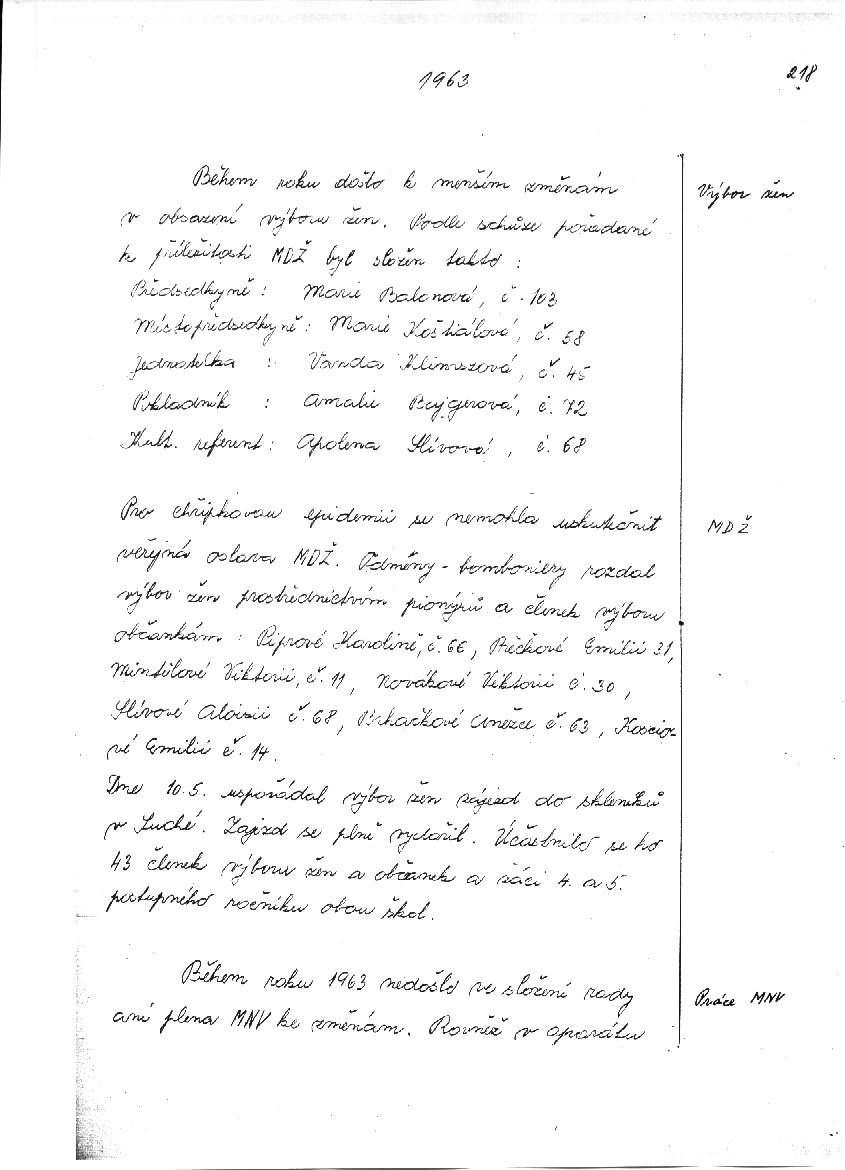 1963
218
Během roku došlo k menším změnám
Výbor žen
v obsazení výboru žen. Podle schůze pořádané
k příležitosti MDŽ byl složen takto :
Předsedkyně : Marie Balonová, č. 103
Místopředsedkyně : Marie Koštialová, č. 58
Jednatelka : Vanda Klimszová, č. 45
Pokladník : Amalie Bajgerová, č. 72
Kult. referent : Apolena Slívová, č. 68
Pro chřipkovou epidemii se nemohla uskutečnit
MDŽ
veřejná oslava MDŽ. Odměny - bomboniery rozdal
výbor žen prostřednictvím pionýrů a členek výboru
občankám : Piprové Karolině, č. 66, Emilii 31,
Viktorii, č. 11, Novákové Viktorii č. 30,
Slívové Aloisii č. 68, Anežce č. 63,
vé Emilii č. 14.
Dne 10.5. uspořádal výbor žen zájezd do skleníků
v Suché. Zájezd se plně vydařil. Účastnilo se ho
43 členek výboru žen a občanek a žáci 4. a 5.
postupného ročníku obou škol.
Během roku 1963 nedošlo ve složení rady
Práce MNV
ani plena MNV ke změnám. Rovněž v aparátu